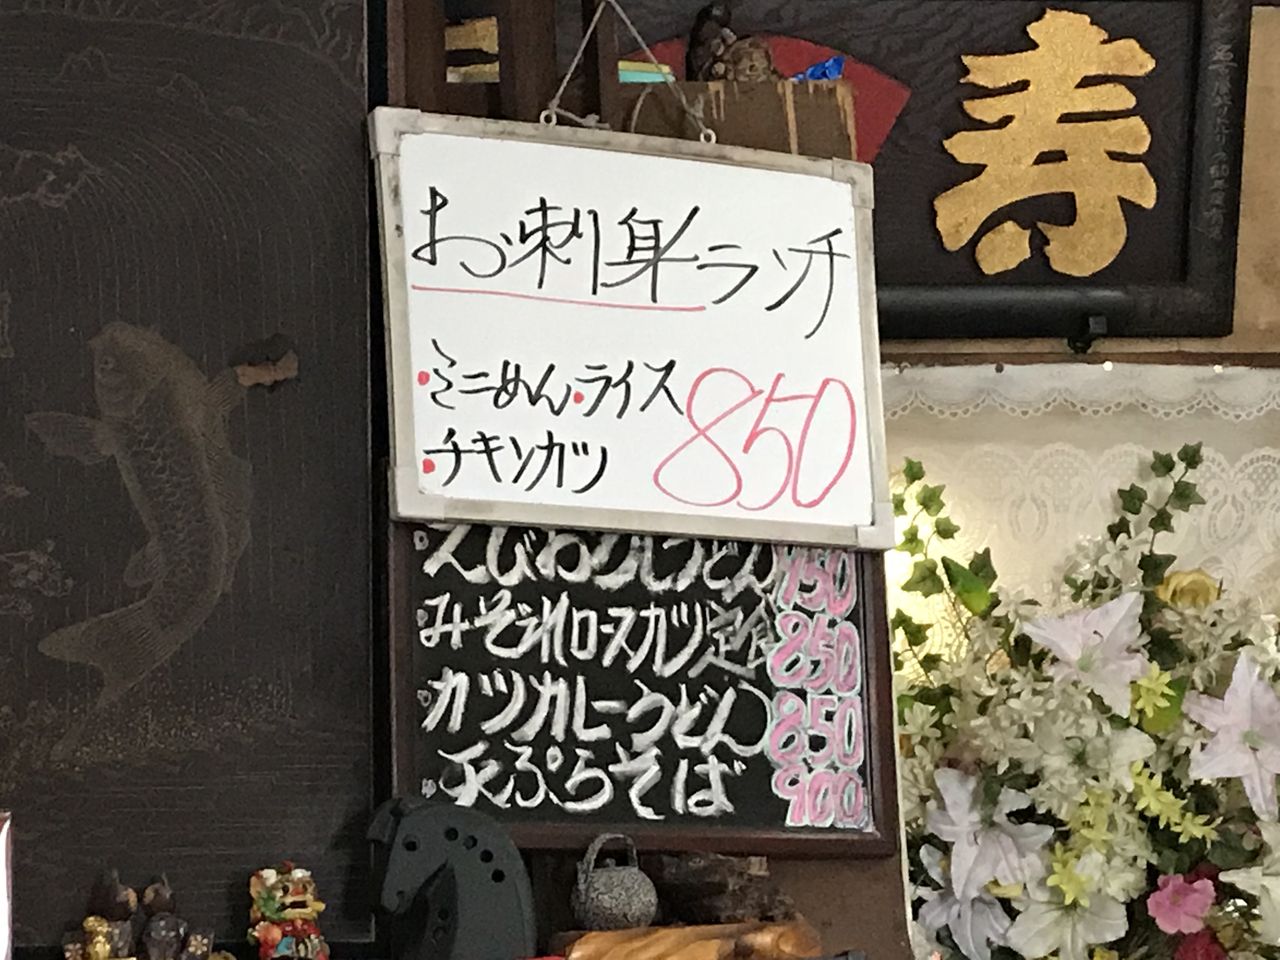 寿
お刺身ランチ
・ミニめん・ライス
・チキンカツ
850
・えびおろしうどん 950
・みぞれロースカツ定食 850
・カツカレーうどん 850
・天ぷらそば 900